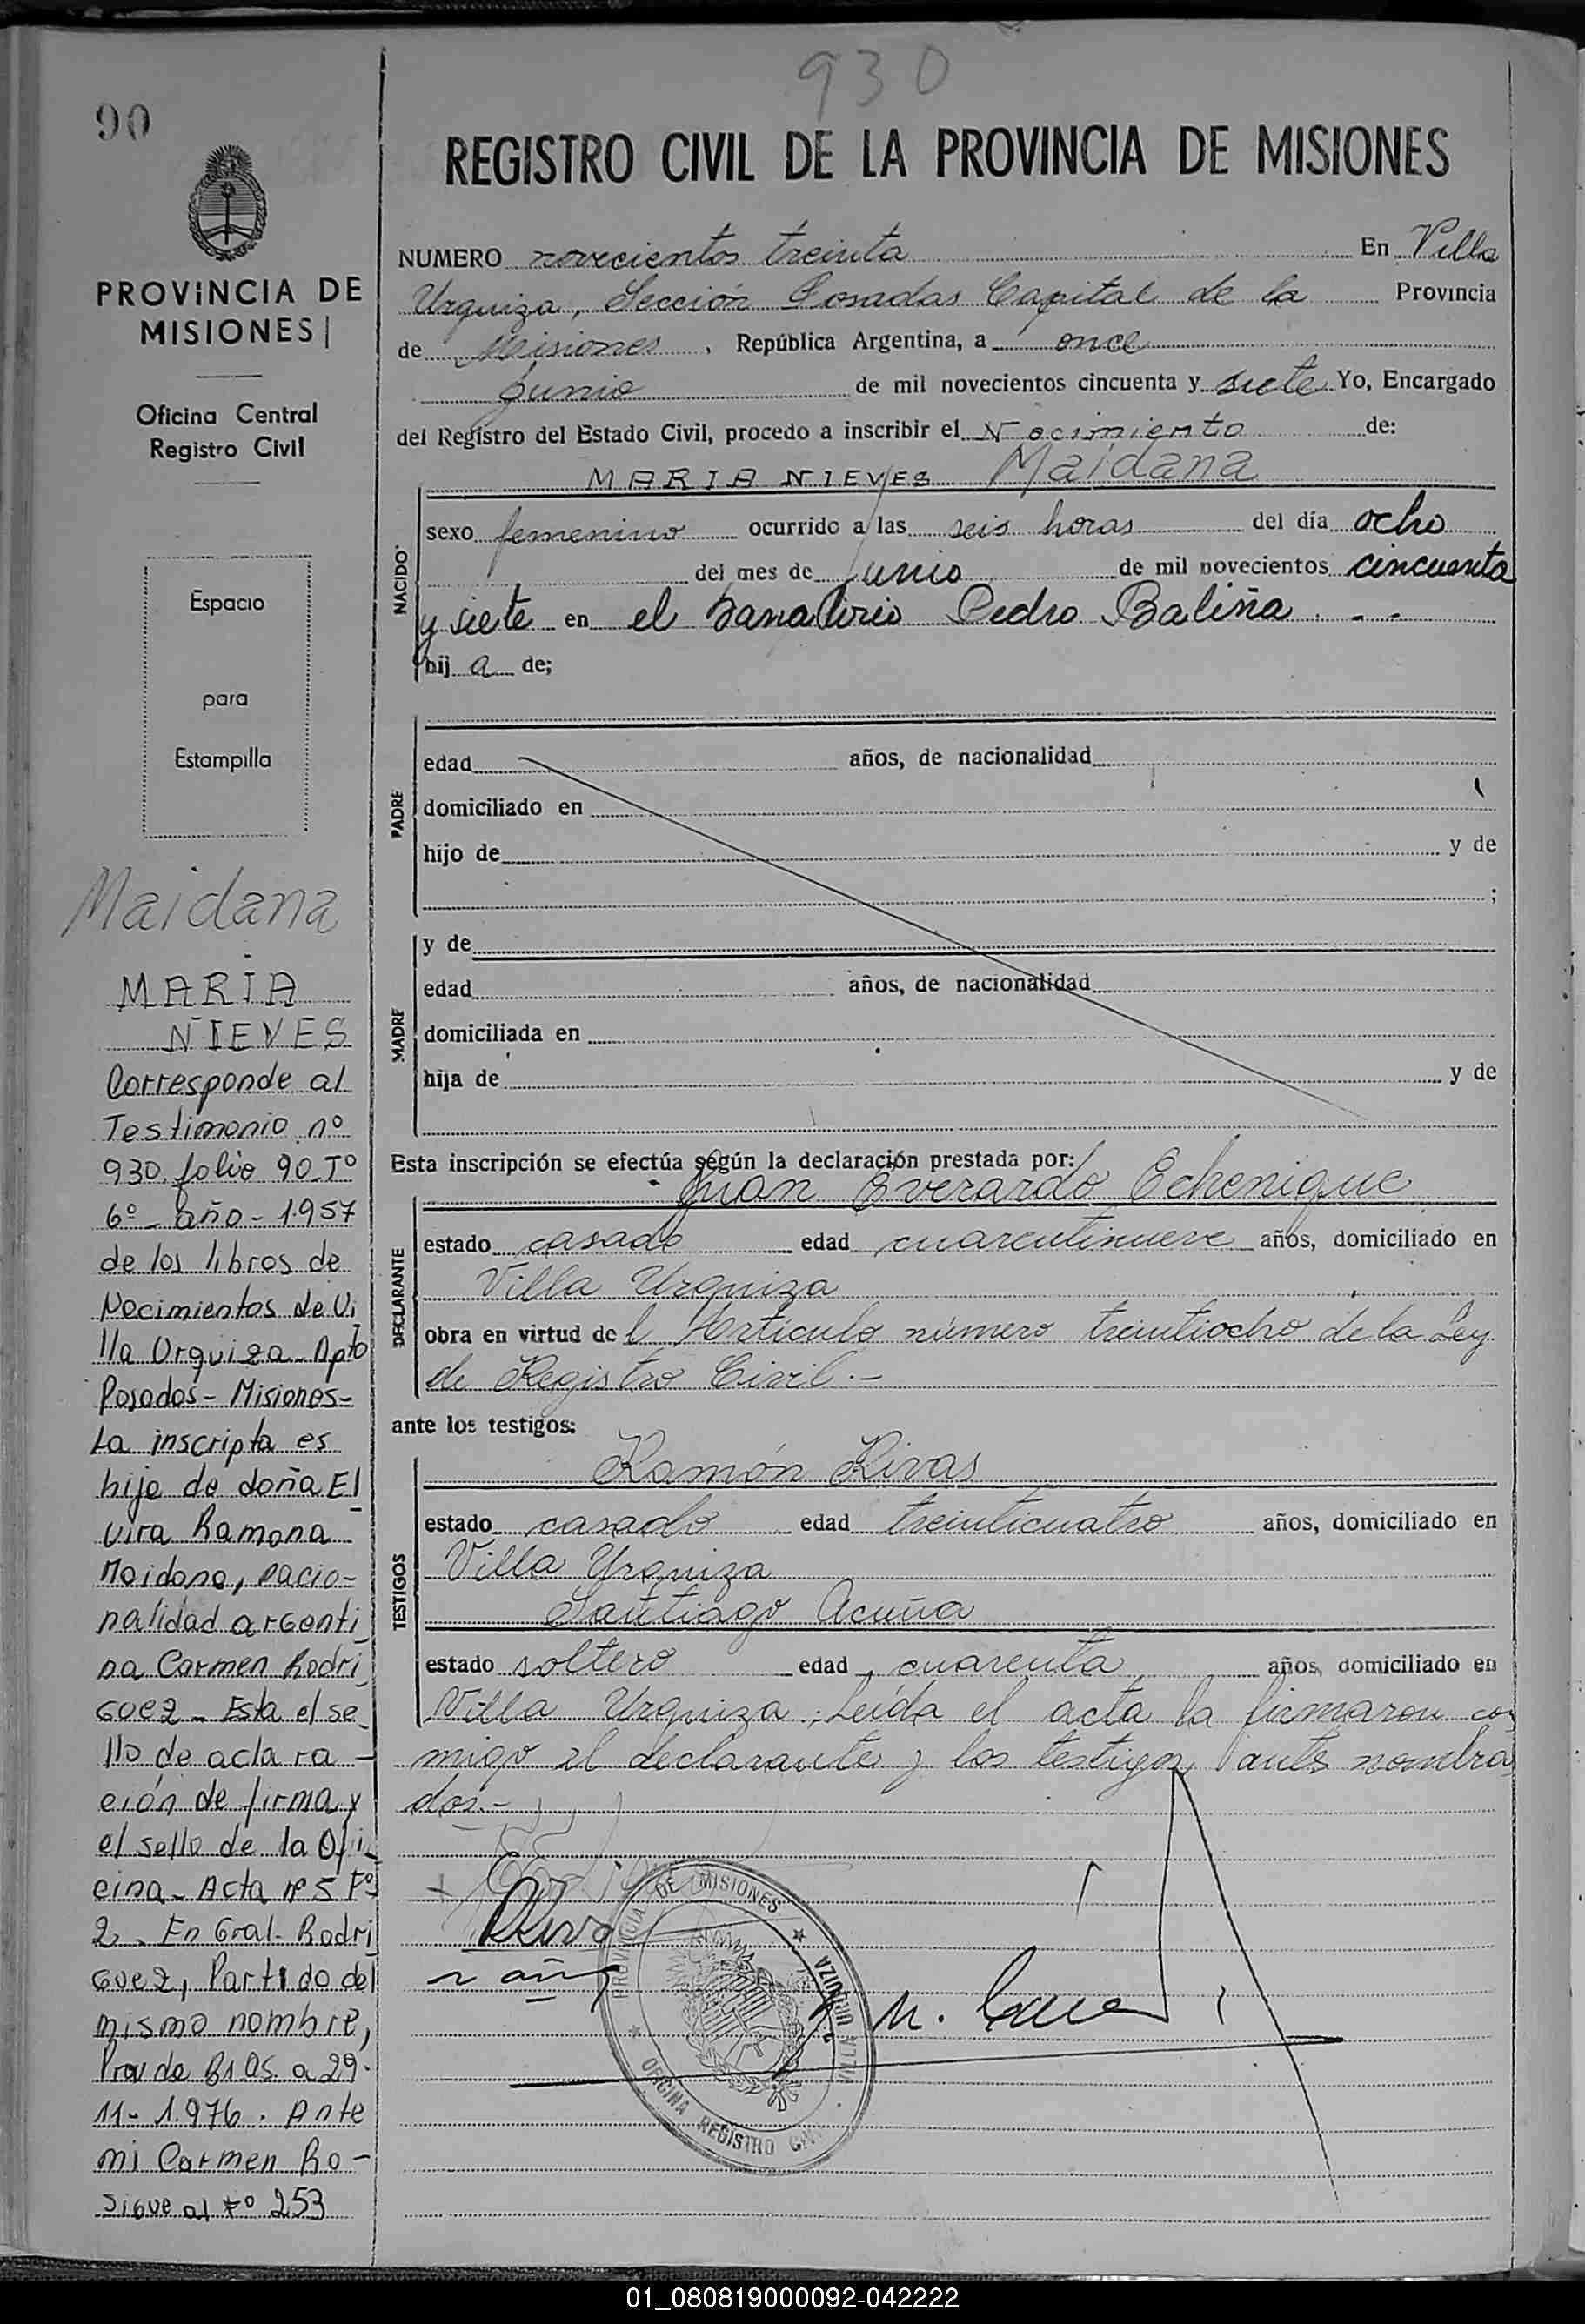 930
90
REGISTRO CIVIL DE LA PROVINCIA DE MISIONES
PROVINCIA DE
MISIONES
Oficina Central
Registro Civil
Espacio
para
Estampilla
Maidana
MARIA
NIEVES
Corresponde al
Testimonio nº
930. folio 90-Tº
6º - año - 1957
de los libros de
Nacimientos de Vi
lla Urquiza - Dpto
Posadas - Misiones-
La inscripta es
hija de doña El
vira Ramona
Maidana, nacio-
nalidad argenti
na Carmen Rodri
guez - Esta el se
llo de aclara -
ción de firma y
el sello de la Ofi
cina - Acta nº 5 Fº
2. En Gral. Rodri
guez, Partido del
mismo nombre,
Prov de Bs As. a 29-
11- 1.976. Ante
mi Carmen Ro -
sigue al Fº 253
NUMERO novecientos treinta En Villa
Urquiza, Sección Posadas Capital de la Provincia
de Misiones, República Argentina, a once
Junio de mil novecientos cincuenta y siete Yo, Encargado
del Registro del Estado Civil, procedo a inscribir el Nacimiento de:
MARIA NIEVES Maidana
NACIDO
sexo femenino ocurrido a las seis horas del día ocho
del mes de junio de mil novecientos cincuenta
y siete en el Sanatorio Pedro Baliña . - -
hij a de;
PADRE
edad años, de nacionalidad
domiciliado en
hijo de y de
;
MADRE
y de
edad años, de nacionalidad
domiciliada en
hija de y de
Esta inscripción se efectúa según la declaración prestada por:
Juan Everardo Echenique
DECLARANTE
estado casado edad cuarentinueve años, domiciliado en
Villa Urquiza
obra en virtud de l Artículo número treintiocho de la Ley
de Registro Civil.-
ante los testigos:
Ramón Rivas
TESTIGOS
estado casado edad treinticuatro años, domiciliado en
Villa Urquiza
Santiago Acuña
estado soltero edad cuarenta años, domiciliado en
Villa Urquiza; Leída el acta la firmaron co
migo el declarante y los testigos ante nombra
dos.-
PROVINCIA DE MISIONES
VILLA URQUIZA
OFICINA REGISTRO CIVIL
01_080819000092-042222